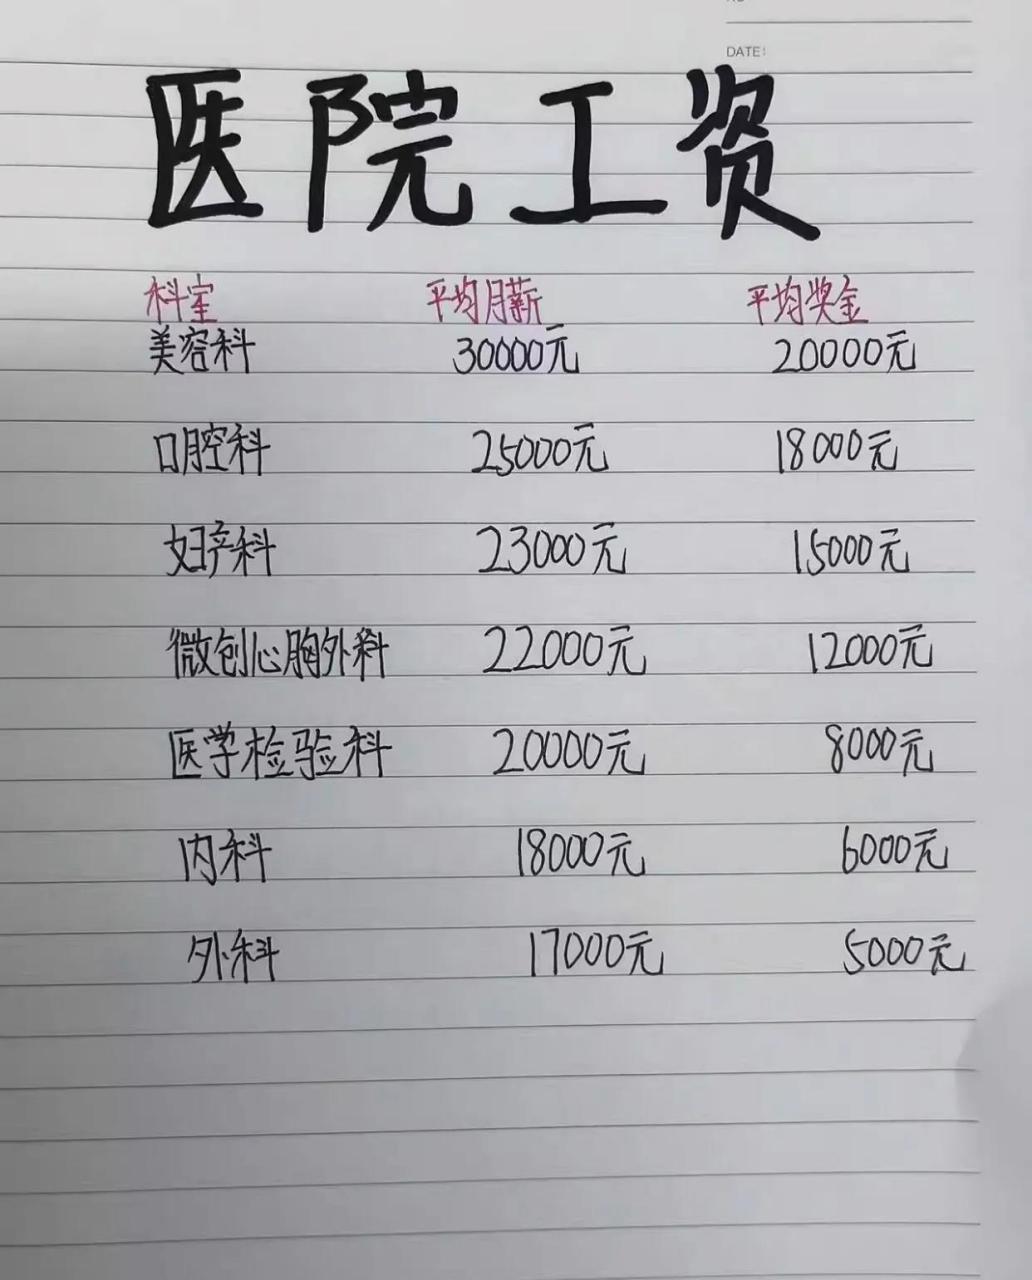 DATE:
医院工资
科室 平均月薪 平均奖金
美容科 30000元 20000元
口腔科 25000元 18000元
妇产科 23000元 15000元
微创心胸外科 22000元 12000元
医学检验科 20000元 8000元
内科 18000元 6000元
外科 17000元 5000元